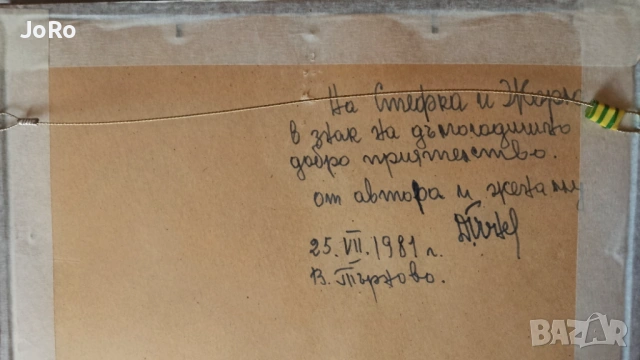 JoRo
На Стефка и
в знак на дългогодишно
добро приятелство.
от автора и жена му
25.VII.1981 г.
В. Търново.
BAZAR
bg